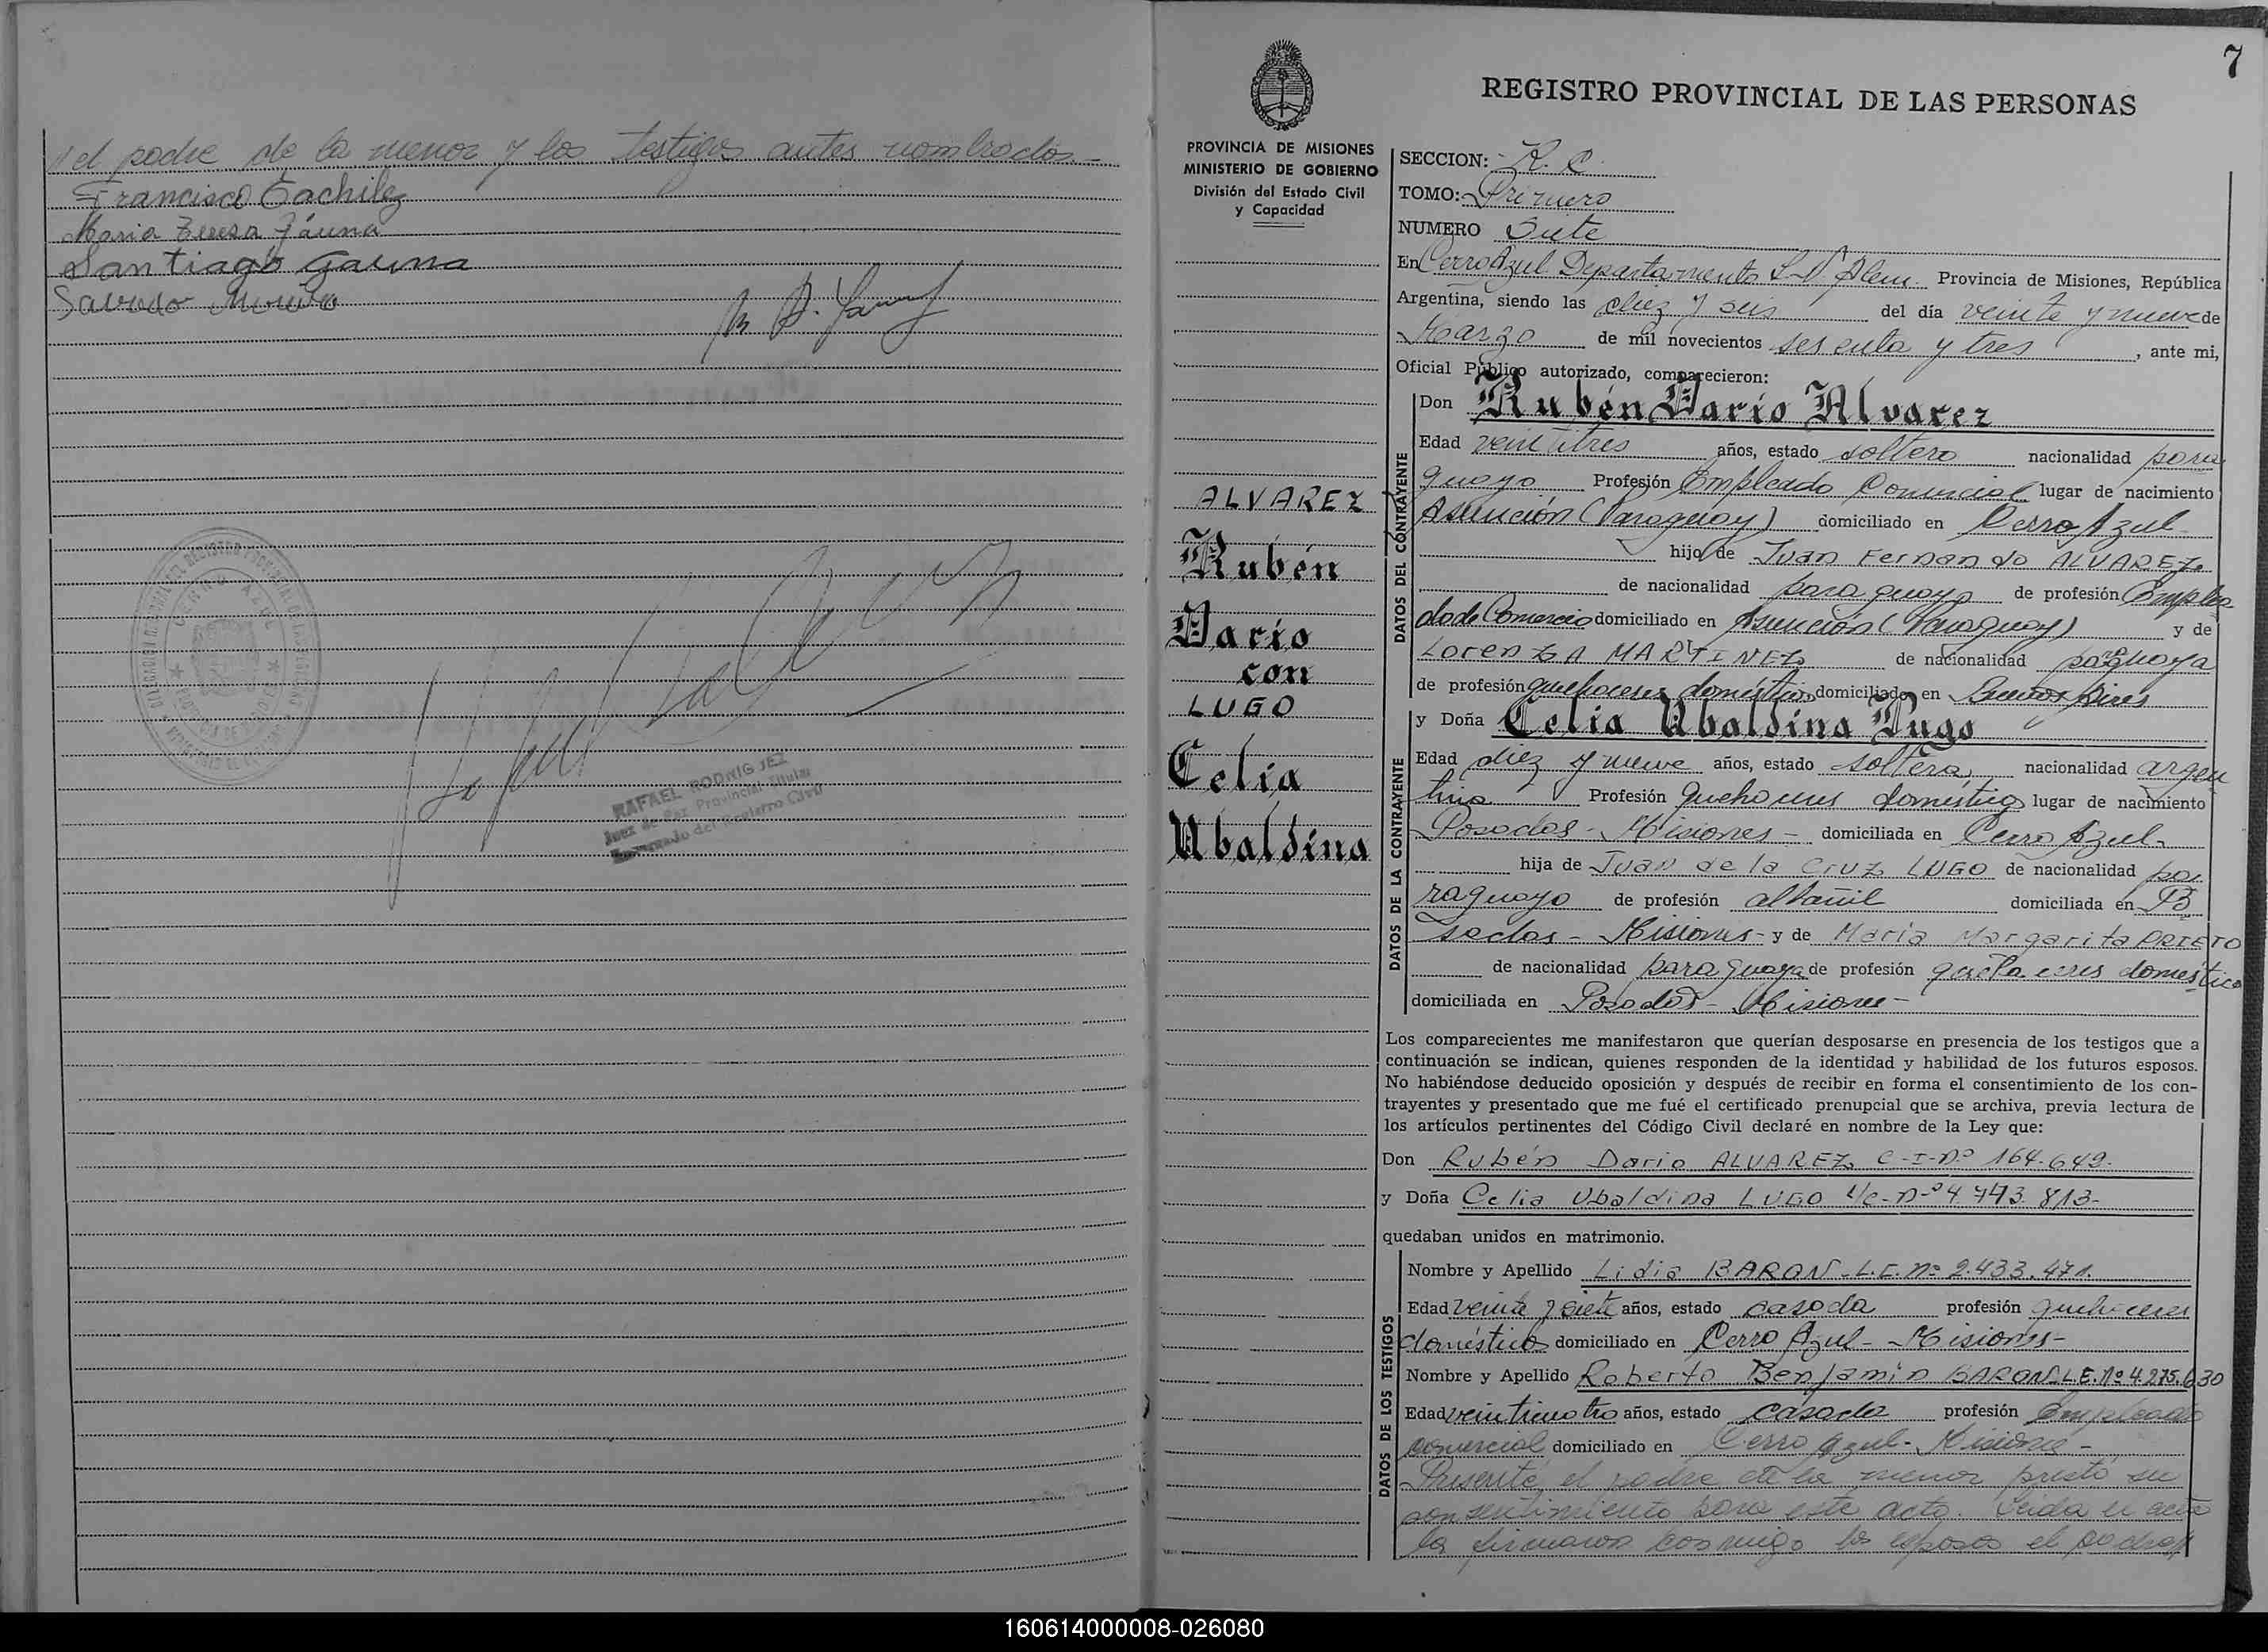 el padre de la menor y los testigos antes nombrados.-
Francisco Cachilez
Maria Teresa Gauna
Santiago Gauna
RAFAEL RODRIGUEZ
Juez de Paz Provincial Titular
Encargado del Registro Civil
7
REGISTRO PROVINCIAL DE LAS PERSONAS
PROVINCIA DE MISIONES
MINISTERIO DE GOBIERNO
División del Estado Civil
y Capacidad
ALVAREZ
Rubén
Darío
con
LUGO
Celia
Ubaldina
SECCION: - R. C.
TOMO: Primero
NUMERO Siete
En Cerro Azul Departamento L. N. Alem. Provincia de Misiones, República
Argentina, siendo las diez y seis del día veinte y nueve de
Marzo de mil novecientos sesenta y tres, ante mi,
Oficial Público autorizado, comparecieron:
DATOS DEL CONTRAYENTE
Don Rubén Darío Alvarez
Edad veintitres años, estado soltero nacionalidad para
guayo Profesión Empleado Comercial lugar de nacimiento
Asunción (Paraguay) domiciliado en Cerro Azul
hijo de Juan Fernando ALVAREZ
de nacionalidad paraguayo de profesión Emplea
do de Comercio domiciliado en Asunción (Paraguay) y de
Lorenza MARTINEZ de nacionalidad paraguaya
de profesión quehaceres domésticos domiciliado en Buenos Aires
DATOS DE LA CONTRAYENTE
y Doña Celia Ubaldina Lugo
Edad diez y nueve años, estado soltera nacionalidad argen
tina Profesión quehaceres domésticos lugar de nacimiento
Posadas - Misiones - domiciliada en Cerro Azul-
hija de Juan de la Cruz LUGO de nacionalidad pa
raguayo de profesión albañil domiciliada en Po
sadas - Misiones - y de María Margarita PRIETO
de nacionalidad paraguaya de profesión quehaceres domésticos
domiciliada en Posadas - Misiones -
Los comparecientes me manifestaron que querían desposarse en presencia de los testigos que a
continuación se indican, quienes responden de la identidad y habilidad de los futuros esposos.
No habiéndose deducido oposición y después de recibir en forma el consentimiento de los con-
trayentes y presentado que me fué el certificado prenupcial que se archiva, previa lectura de
los artículos pertinentes del Código Civil declaré en nombre de la Ley que:
Don Rubén Dario ALVAREZ C-I-nº 164.649.
y Doña Celia Ubaldina LUGO L/C-nº 4.443.813-
quedaban unidos en matrimonio.
DATOS DE LOS TESTIGOS
Nombre y Apellido Lidia BARON-L.C.nº 2.433.471.
Edad veinte y siete años, estado casada profesión quehaceres
domésticos domiciliado en Cerro Azul - Misiones-
Nombre y Apellido Roberto Benjamin BARON L.E.Nº 4.275.630
Edad veinticuatro años, estado casado profesión Empleado
comercial domiciliado en Cerro Azul - Misiones -
Presente el padre de la menor prestó su
consentimiento para este acto. Leida el acta
la firmaron conmigo los esposos el padre
160614000008-026080